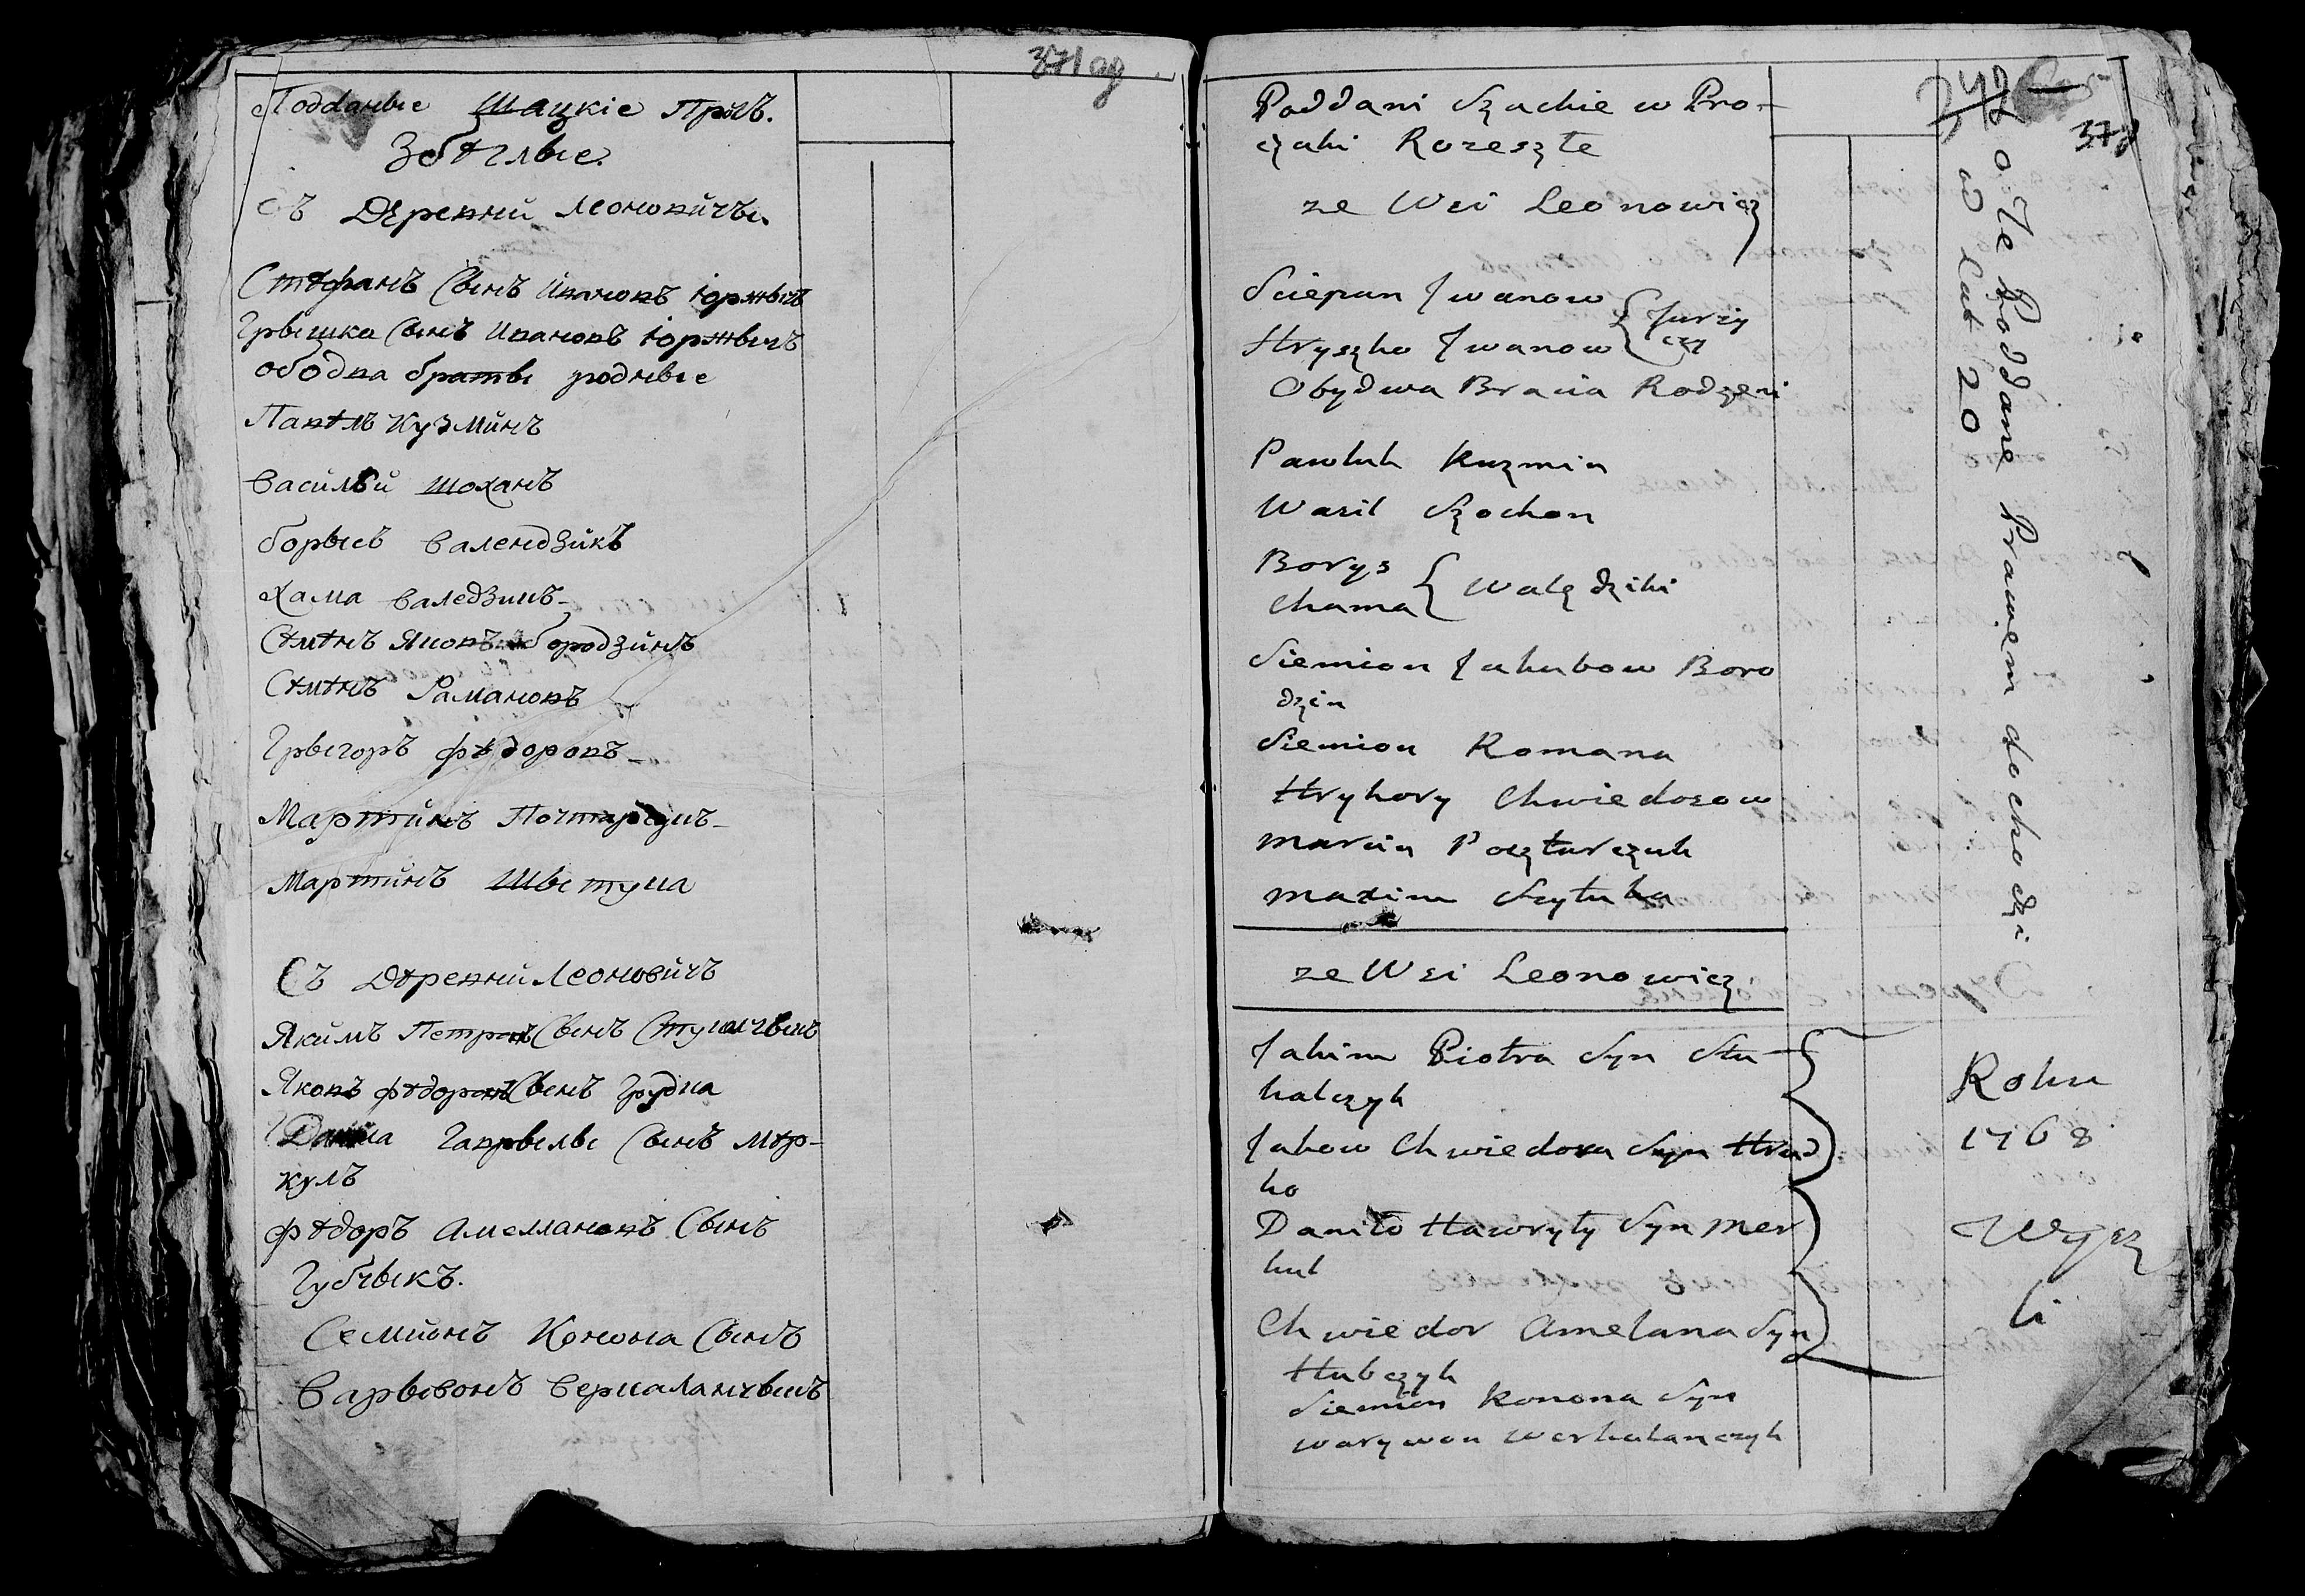 371 об
Подданые Шацкіе Проч.
Збѣглые.
Съ Деревни Леоновичъ.
Стефанъ Сынъ Ивановъ Юржычъ
Грышка Сынъ Ивановъ Юржычъ
ободва браты родные
Павелъ Кузминъ
Василѣй Шоханъ
Борысъ Валендзикъ
Хама Валедзикъ
Семенъ Яковъ Бородзинъ
Семенъ Рамановъ
Грыгоръ Федоровъ
Мартинъ Почтарчукъ
Мартинъ Шытука
Съ Деревни Леоновичъ
Якимъ Петровъ Сынъ Стукалчыкъ
Яковъ Федоровъ Сынъ Грудка
Данила Гаврылы Сынъ Мер-
кулъ
Федоръ Амелляновъ Сынъ
Губчыкъ.
Семионъ Конона Сынъ
Варывонъ Веркаланчыкъ
372
Poddani Szackie w Pro-
czaki Rozeszłe
ze Wsi Leonowicz
Sciepan Iwanow
Hryszko Iwanow { Jurży
czy
Obydwa Bracia Rodzeni
Pawluk Kuzmin
Wasil Szochon
Borys
Chama { Walędziki
Siemion Jakubow Boro
dzin
Siemion Romana
Hryhory Chwiedorow
Marcin Poczturczuk
Maxim Szytuka
ze Wsi Leonowicz
Jakim Piotra Syn Stu-
kalczyk
Jakow Chwiedora Syn Hrud
ko
Daniło Hawryły Syn Mer
kul
Chwiedor Amelana Syn
Hubczyk
Siemion Konona Syn
Warywon Werkalanczyk
o Te Poddane Prawem dochodzi
od Lat 20
Roku
1768
Wysz
li